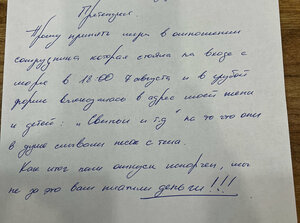 Претензия.
Прошу принять меры в отношении
сотрудника которая стояла на входе с
моря в 18:00 7 августа и в грубой
форме выразилась в адрес моей жены
и детей: "Свиньи и т.д" на то что они
в душе смывали песок с тела.
Как итог нам отпуск испорчен, мы
не за это вам платили деньги!!!